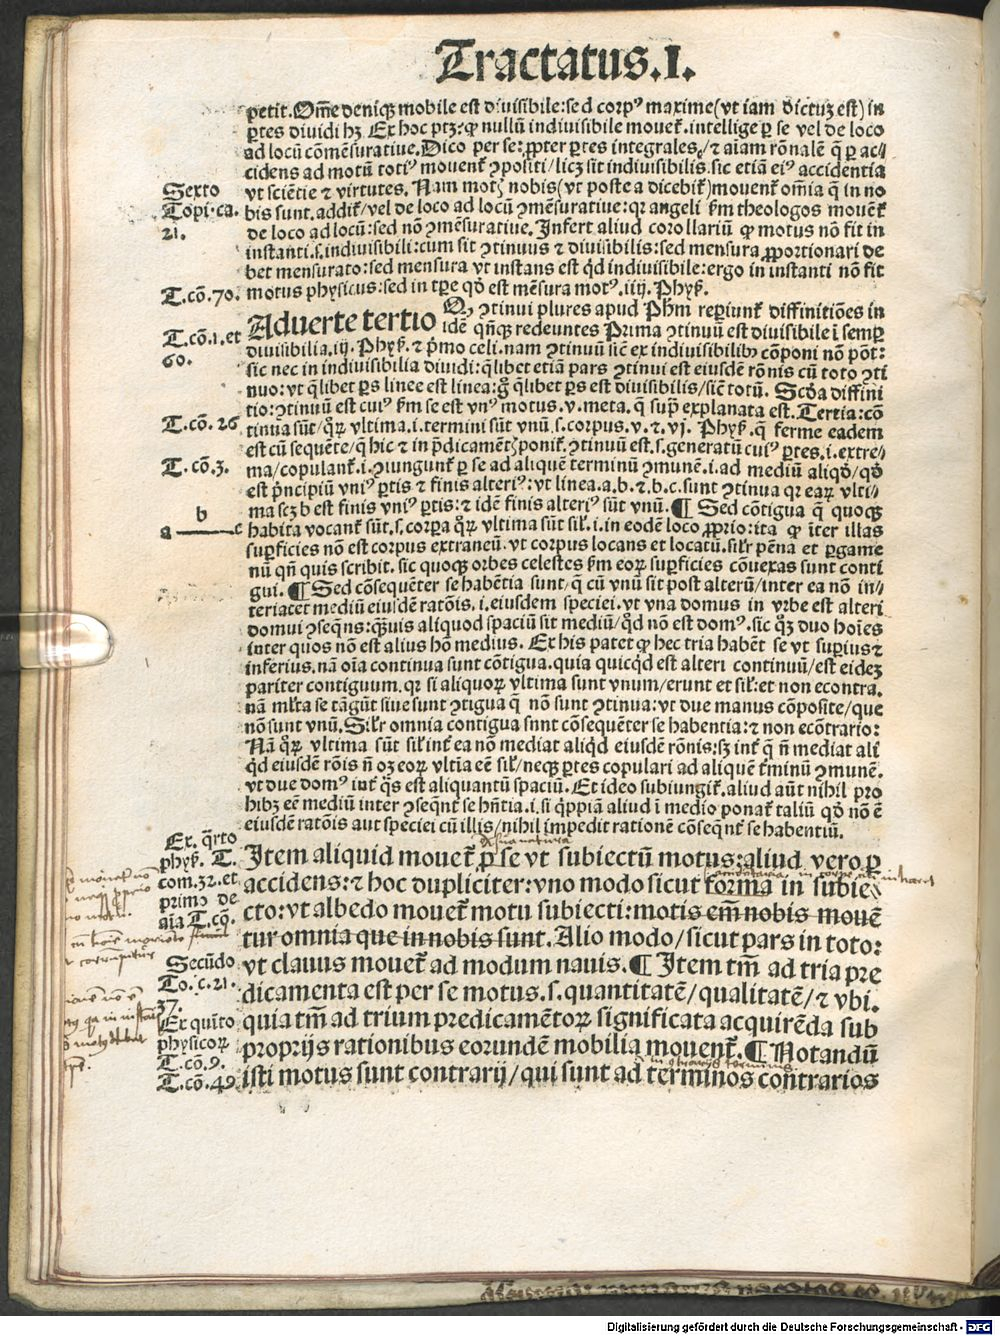 Tractatus.I.
petit. Om̄e deniqꝫ mobile est diuisibile: sed corpꝰ maxime (vt iam dictuꝫ est) in
ꝑtes diuidi hꝫ Ex hoc ptꝫ: ꝙ nullū indiuisibile mouet᷑. intellige ꝑ se vel de loco
ad locū cōmēsuratiue. Dico per se: ꝓpter ꝑtes integrales / ⁊ aīam rōnalē q̄ ꝑ ac//
cidens ad motū totiꝰ mouent᷑ ꝯpositi / licꝫ sīt indiuisibilis. sic etiā eiꝰ accidentia
Sexto
vt sciētie ⁊ virtutes. Nam motꝭ nobis (vt poste a dicebit᷑) mouent᷑ om̄ia q̄ in no
Topi. ca.
bis sunt. addit᷑ / vel de loco ad locū ꝯmēsuratiue: qꝛ angeli ẜm theologos mouēt᷑
21.
de loco ad locū: sed nō ꝯmēsuratiue. Infert᷑ aliud corollariū ꝙ motus nō fit in
instanti. s. indiuisibili: cum sit ꝯtinuus ⁊ diuisibilis: sed mensura ꝓportionari de
bet mensurato: sed mensura vt instans est qͥd indiuisibile: ergo in instanti nō fit
T. cō. 70.
motus physicus: sed in tꝑe qd̓ est mēsura motꝰ. iiij. Phyẜ.
Aduerte tertio
Qꝫ ꝯtinui plures apud Phm reꝑiunt᷑ diffinitiōes in
T. cō. 1. et
idē qn̄qꝫ redeuntes Prima ꝯtinuū est diuisibile ī semꝑ
60.
diuisibilia. iij. Phyẜ. ⁊ pͥmo celi. nam ꝯtinuū sic̄ ex indiuisibilibꝰ cōponi nō pōt:
sic nec in indiuisibilia diuidi: qͥlibet etiā pars ꝯtinui est eiusdē rōnis cū toto ꝯti
nuo: vt qͥlibet ꝑs linee est linea: gͦ qͥlibet ꝑs est diuisibilis / sic̄ totū. Scd̓a diffini
tio: ꝯtinuū est cuiꝰ ẜm se est vnꝰ motus. v. meta. q̄ supͣ explanata est. Tertia: cō
T. cō. 26
tinua sūt / qͦꝝ vltima. i. termini sūt vnū. s. corpus. v. ⁊ vj. Phyẜ. q̄ ferme eadem
est cū sequēte / q̄ hic ⁊ in pͥdicamētꝭ ponit᷑. ꝯtinuū est. s. generatū cuiꝰ ꝑtes. i. extre//
T. cō. 3.
ma / copulant᷑. i. ꝯiungunt᷑ ꝑ se ad aliquē terminū ꝯmunē. i. ad mediū aliqd̓ / qd̓
est pͥncipiū vniꝰ ꝑtis ⁊ finis alteriꝰ: vt linea. a. b. ⁊ b. c. sunt ꝯtinua qꝛ eaꝝ vlti//
b
ma scꝫ b est finis vniꝰ ꝑtis: ⁊ idē finis alteriꝰ sūt vnū. ¶ Sed cōtigua q̄ quoqꝫ
a c
habita vocant᷑ sūt. s. corꝑa qͦꝝ vltima sūt sil̓. i. in eodē loco ꝓprio: ita ꝙ īter illas
suꝑficies nō est corpus extraneū. vt corpus locans et locatū. sil̓r pēna et ꝑgame
nū qn̄ quis scribit. sic quoqꝫ orbes celestes ẜm eoꝝ suꝑficies cōuexas sunt conti
gui. ¶ Sed cōsequēter se habētia sunt / q̄ cū vnū sit post alterū / inter ea nō in//
teriacet mediū eiusdē ratōis. i. eiusdem speciei. vt vna domus in vrbe est alteri
domui ꝯseqn̄s: qͣuis aliquod spaciū sit mediū / qd̓ nō est domꝰ. sic qͦꝫ duo hoīes
inter quos nō est alius hō medius. Ex his patet ꝙ hec tria habēt se vt suꝑius ⁊
inferius. nā oīa continua sunt cōtigua. quia quicqͥd est alteri continuū / est eideꝫ
pariter contiguum. qꝛ si aliquoꝝ vltima sunt vnum / erunt et sil̓: et non econtra.
nā ml̓ta se tāgūt siue sunt ꝯtigua q̄ nō sunt ꝯtinua: vt due manus cōposite / que
nō sunt vnū. Sil̓r omnia contigua snnt cōsequēter se habentia: ⁊ non ecōtrario:
Nā qͦꝝ vltima sūt sil̓ int᷑ ea nō mediat aliqͥd eiusdē rōnis: sꝫ int᷑ q̄ n̄ mediat ali
qͥd eiusdē rōis n̄ oꝫ eoꝝ vltīa eē sil̓ / neqꝫ ꝑtes copulari ad aliquē t᷑minū ꝯmunē.
vt due domꝰ int᷑ qͣs est aliquantū spaciū. Et ideo subiungit᷑. aliud aūt nihil pro
hibꝫ eē mediū inter ꝯseqn̄t᷑ se hn̄tia. i. si qͥppiā aliud ī medio ponat᷑ taliū qd̓ nō ē
eiusdē ratōis aut speciei cū illis / nihil impedit rationē cōseqn̄t᷑ se habentiū.
Ex. qͣrto
phyẜ. T.
Item aliquid mouet᷑ ꝑ se vt subiectū motus: aliud vero ꝑ
com. 32. et
accidens: ⁊ hoc dupliciter: vno modo sicut forma in subie
primo de
cto: vt albedo mouet᷑ motu subiecti: motis em̄ nobis mouē
aīa T. cō.
tur omnia que in nobis sunt. Alio modo / sicut pars in toto:
Secūdo
vt clauus mouet᷑ ad modum nauis. ¶ Item tm̄ ad tria pre
To. c. 21.
dicamenta est per se motus. s. quantitatē / qualitatē / ⁊ vbi.
37.
Ex quīto
quia tm̄ ad trium predicamētoꝝ significata acquirēda sub
physicoꝝ
proprijs rationibus eorundē mobilia mouent᷑. ¶ Notandū
T. cō. 9.
T. cō. 49
isti motus sunt contrarij / qui sunt ad terminos contrarios
Digitalisierung gefördert durch die Deutsche Forschungsgemeinschaft - DFG